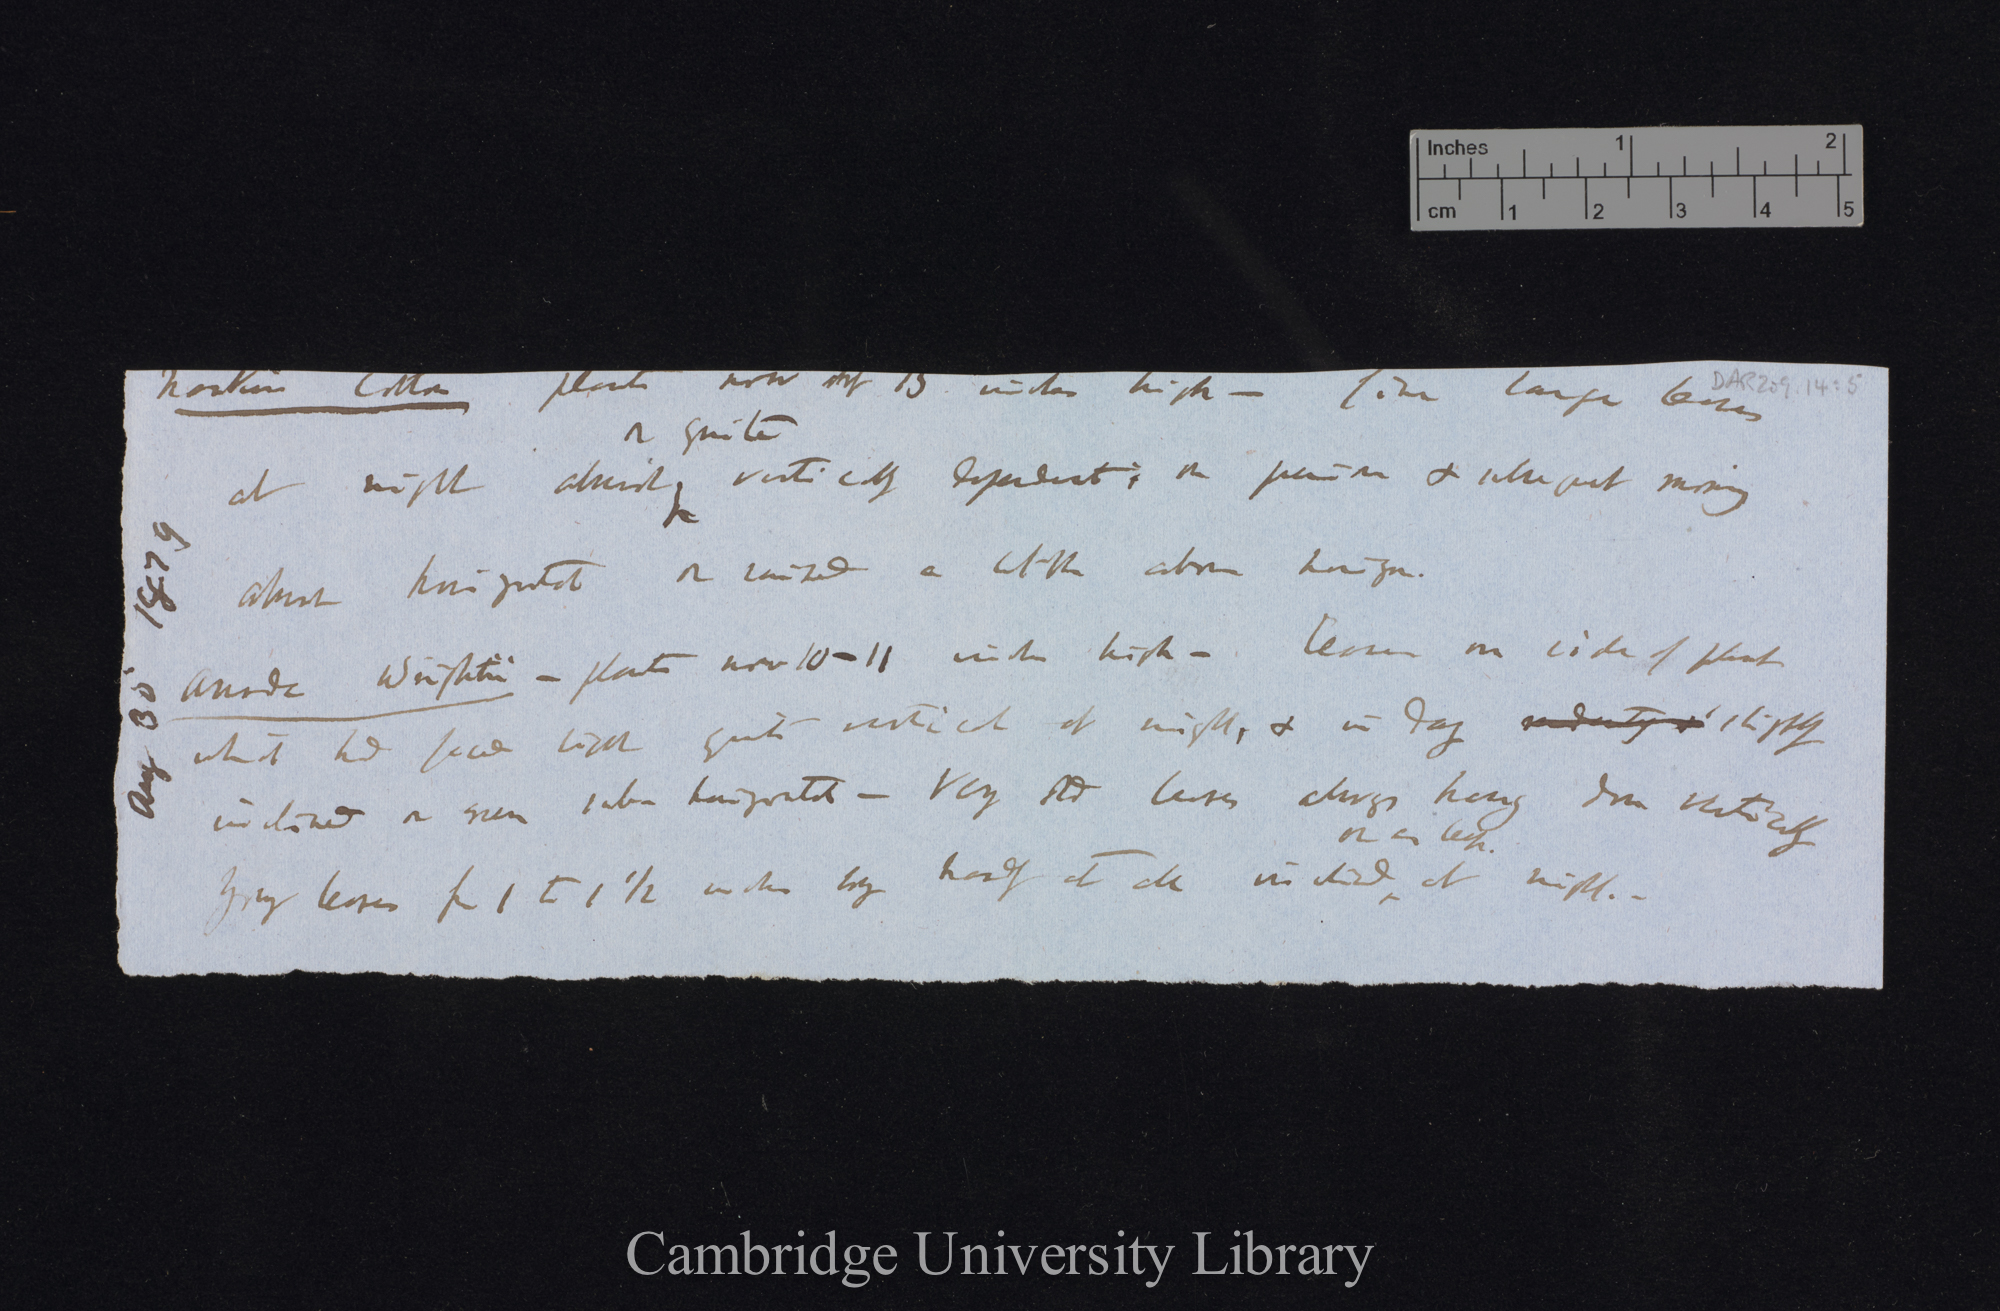 Inches 1 2
cm 1 2 3 4 5
DAR 209.14:5
Aug 30' 1879
Nankin Cotton plants now 13 inches high — fine large leaves
or quite
at night almost vertically dependent; on previous & subsequent morning
almost horizontal or raised a little above horizon.
Anoda Wrightii — plants now 10–11 inches high — leaves on side of plant
which had faced light quite vertical at night, & in day slightly
inclined or even sub horizontal — Very old leaves always hang down vertically
or as leaf.
Young leaves from 1 to 1 1/2 inches long hardly at all inclined at night. —
Cambridge University Library